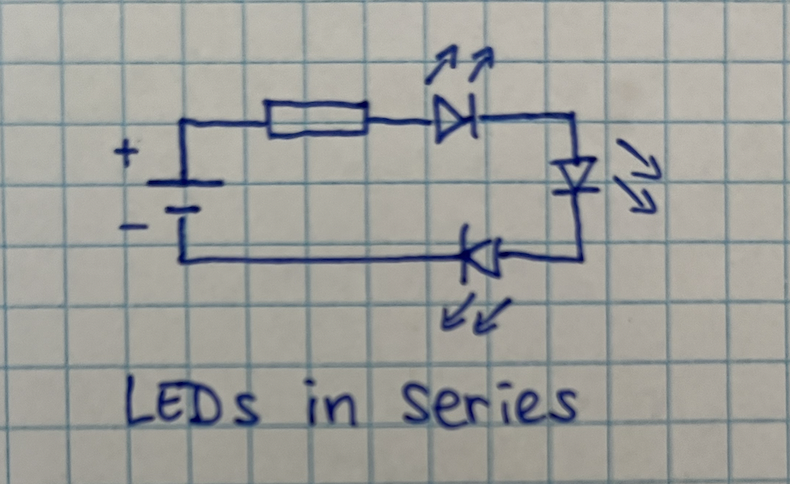 +
−
LEDs in series